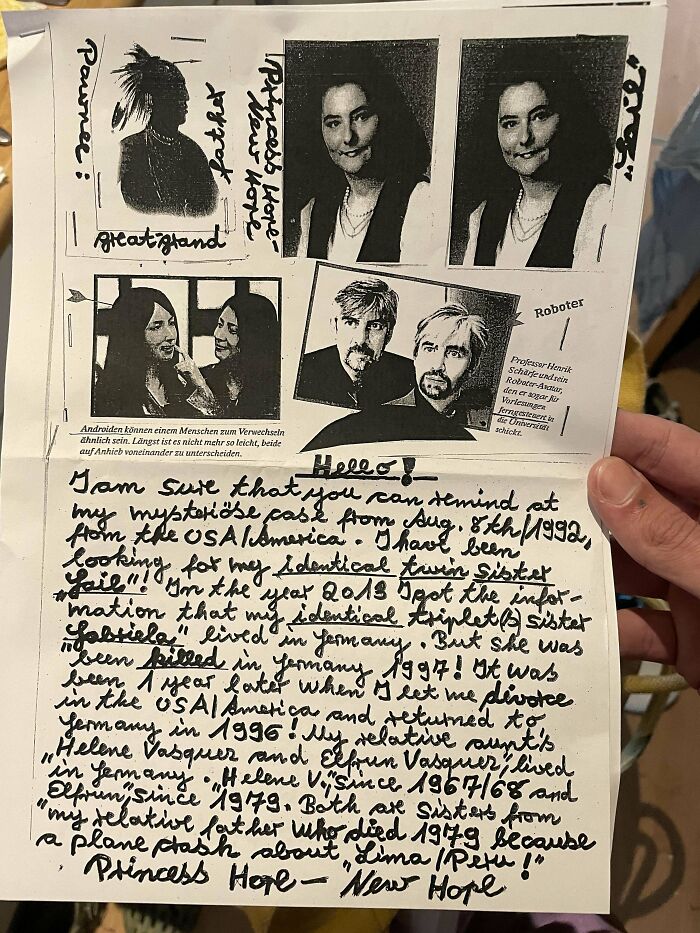 Pawnee:
great-grand
father
Princess Hope-
New Hope
"Gail"
Roboter
Professor Henrik
Schärfe und sein
Roboter-Avatar,
den er sogar für
Vorlesungen
ferngesteuert in
die Universität
schickt.
Androiden können einem Menschen zum Verwechseln
ähnlich sein. Längst ist es nicht mehr so leicht, beide
auf Anhieb voneinander zu unterscheiden.
Hello!
I am sure that you can remind at
my mysteriöse case from Aug. 8th/1992,
from the USA/America. I have been
looking for my identical twin sister
"Gail"! In the year 2013 I got the infor-
mation that my identical triplet(s) sister
"Gabriela" lived in Germany. But she was
been killed in Germany 1997! It was
been 1 year later when I let me divorce
in the USA/America and returned to
Germany in 1996! My relative aunt's
"Helene Vasquez and Elfrun Vasquez" lived
in Germany. "Helene V." since 1967/68 and
Elfrun, since 1979. Both are sisters from
"my relative father who died 1979 because
a plane crash about "Lima/Peru!"
Princess Hope - New Hope